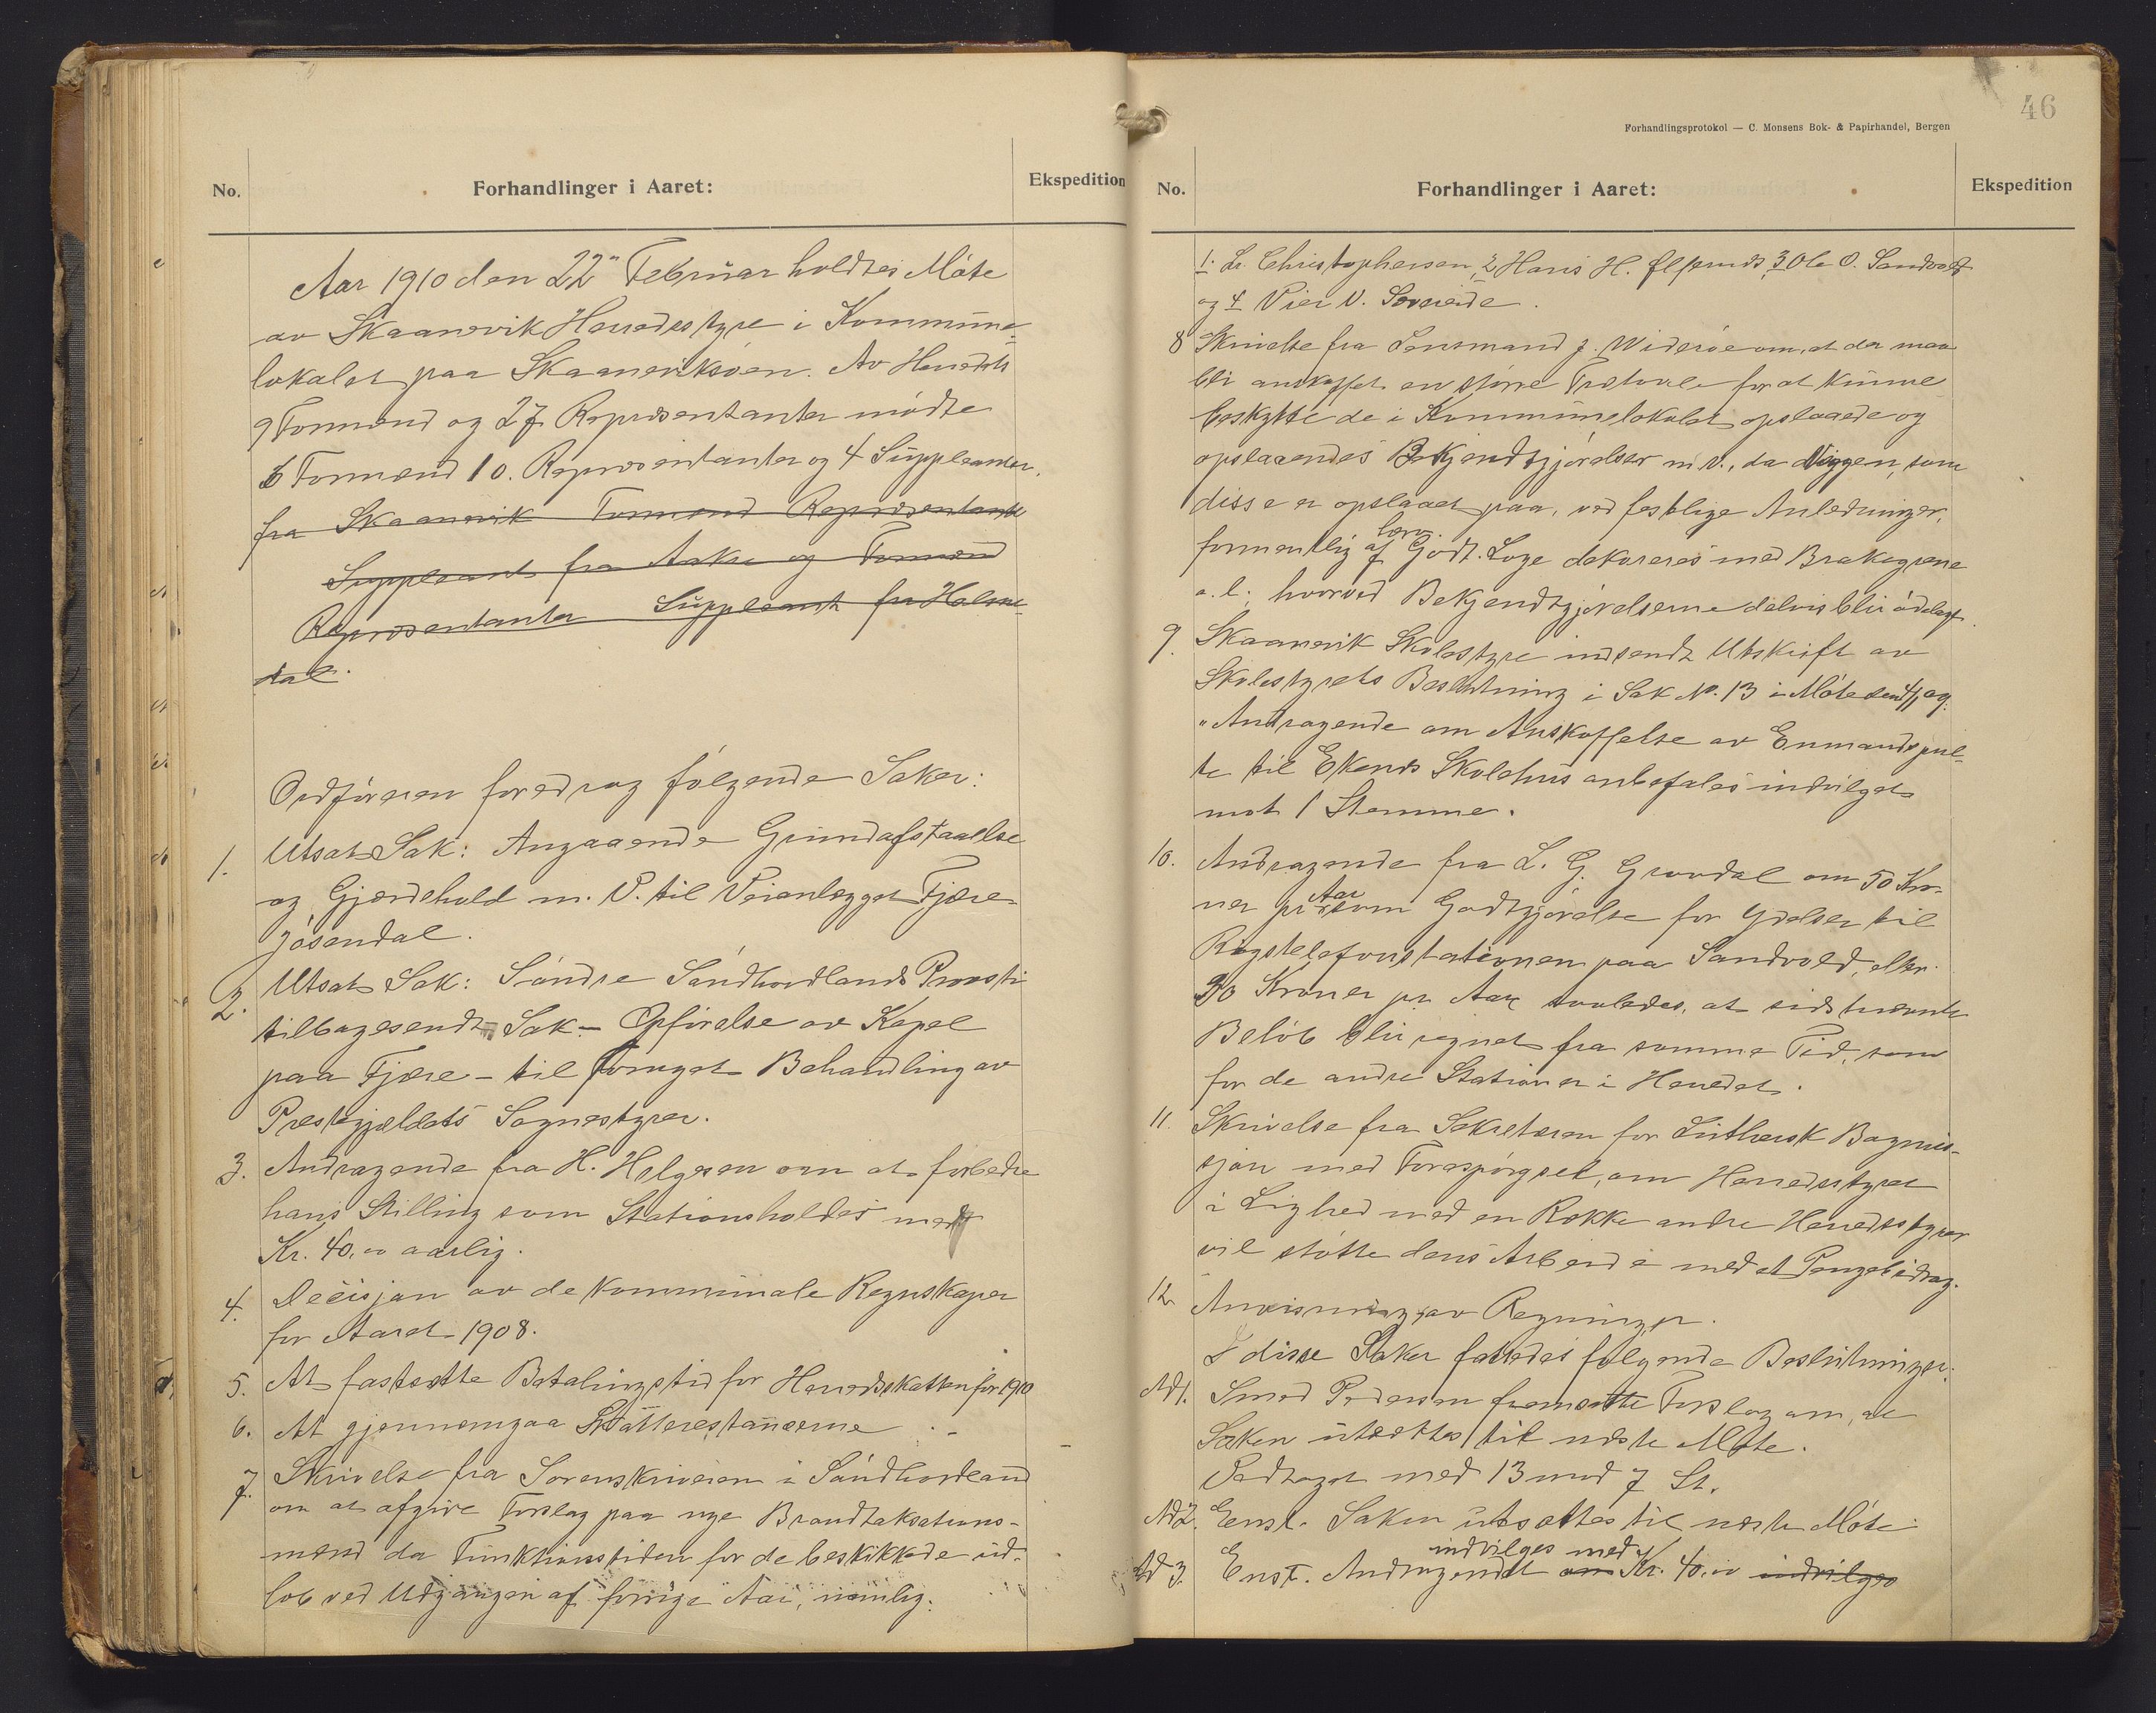 No.
Forhandlinger i Aaret:
Ekspedition
Aar 1910 den 22" Februar holdtes Møte
av Skaanevik Herredsstyre i Kommune-
lokalet paa Skaaneviksøen. Av Herredets
9 Formænd og 27 Repræsentanter mødte
6 Formænd 10. Repræsentanter og 4 Suppleanter.
fra Skaanevik Formænd Repræsentanter
Suppleant fra Aakre og Formænd
Repræsentanter Suppleant fra Holme-
dal.
Ordføreren foredrog følgende Saker:
1. Utsat Sak: Angaaende Grundafstaaelse
og Gjærdehold m. V. til Veianlægget Fjære-
Jøsendal.
2. Utsat Sak: Søndre Søndhordlands Provsti
tilbagesendt Sak - Opførelse av Kapel
paa Fjære - til fornyet Behandling av
Prestegjeldets Sognestyrer.
3. Andragende fra H. Helgesen om at forbedre
hans Stilling som Stationsholder med
Kr. 40,00 aarlig.
4. Decisjon av de kommunale Regnskaper
for Aaret 1908.
5. At fastsætte Betalingstid for Herredsskatten for 1910
6. At gjennemgaa Skatterestancerne
7. Skrivelse fra Sorenskriveren i Søndhordland
om at afgive Forslag paa nye Brandtaksations-
mænd da Funktionstiden for de beskikkede ud-
løb ved Udgangen af forrige Aar, nemlig:
46
Forhandlingsprotokol — C. Monsens Bok- & Papirhandel, Bergen
No.
Forhandlinger i Aaret:
Ekspedition
1. Chr. Christophersen, 2 Hans H. Ølfernæs, 3 Ole O. Sandvold
og 4 Vier V.
8 Skrivelse fra Lensmand J. Widerøe om, at der maa
bli anskaffet en større Trætavle for at kunne
beskytte de i Kommunelokalet opslaaede og
opslaaendes Bekjendtgjørelser m. V., da Væggen, som
disse er opslaaet paa, ved festlige Anledninger,
formentlig af Godt. Loge dekoreres med Brakegrene
o. l., hvorved Bekjendtgjørelserne delvis blir ødelagt.
9. Skaanevik Skolestyre indsendt Utskrift av
Skolestyrets Beslutning i Sak No. 13 i Møte den 4/1 09:
"Andragende om Anskaffelse av Enmandspul-
te til Ekenes Skolehus anbefales indvilget
mot 1 Stemme.
10. Andragende fra L. G. Grovdal om 50 Kro-
ner pr Aar som Godtgjørelse for Ydelser til
Rigstelefonstationen paa Sandvold, eller
30 Kroner pr. Aar saaledes, at sidstnævnte
Beløb blir regnet fra samme Tid, som
for de andre Stationer i Herredet.
11. Skrivelse fra Sekretæren for Luthersk Bogmis-
sjon med Forespørgsel, om Herredsstyret
i Lighed med en Række andre Herredsstyrer
vil støtte dens Arbeide med et Pengebidrag.
12. Anvisning av Regninger.
I disse Saker fattedes følgende Beslutninger:
Ad 1. Smed Pedersen fremsatte Forslag om, at
Saken utsættes til næste Møte.
Vedtaget med 13 mod 7 St.
Ad 2. Eenst. Saken utsættes til næste Møte.
indvilges med
Ad 3. Enst. Andragendet om Kr. 40,00 indvilges